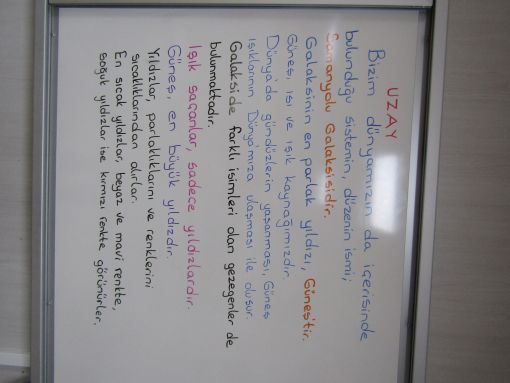 UZAY
Bizim dünyamızın da içerisinde
bulunduğu sistemin, düzenin ismi;
Samanyolu Galaksisidir.
Galaksinin en parlak yıldızı, Güneş'tir.
Güneş, ısı ve ışık kaynağımızdır.
Dünya'da gündüzlerin yaşanması, Güneş
ışıklarının Dünya'mıza ulaşması ile oluşur.
Galakside farklı isimleri olan gezegenler de
bulunmaktadır.
Işık saçanlar, sadece yıldızlardır.
Güneş, en büyük yıldızdır.
Yıldızlar, parlaklıklarını ve renklerini
sıcaklıklarından alırlar.
En sıcak yıldızlar, beyaz ve mavi renkte,
soğuk yıldızlar ise kırmızı renkte görünürler.